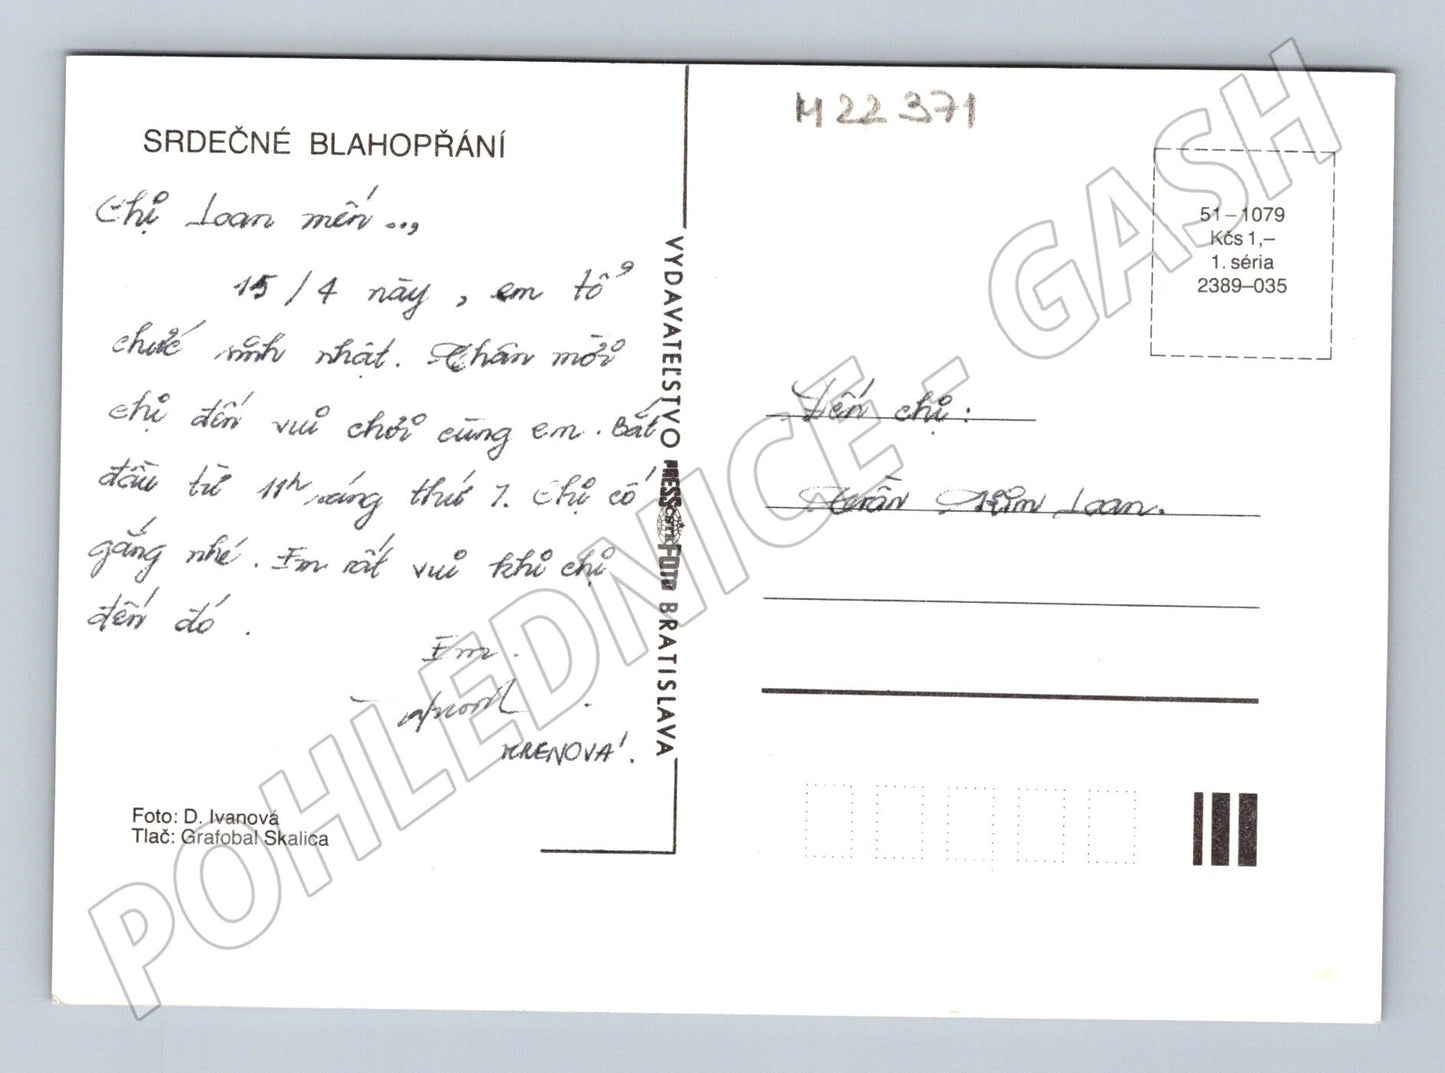 M 22 371
SRDEČNÉ BLAHOPŘÁNÍ
Chị Loan mến ...,
15 / 4 này, em tổ
chức sinh nhật. Thân mời
chị đến vui chơi cùng em. Bắt
đầu từ 11h sáng thứ 7. Chị cố
gắng nhé. Em rất vui khi chị
đến đó.
Em.
KRENOVA'.
Foto: D. Ivanová
Tlač: Grafobal Skalica
VYDAVATEĽSTVO PRESSFOTO BRATISLAVA
51–1079
Kčs 1,–
1. séria
2389–035
Đến chị:
Trần Kim Loan.
POHLEDNICE - GASH